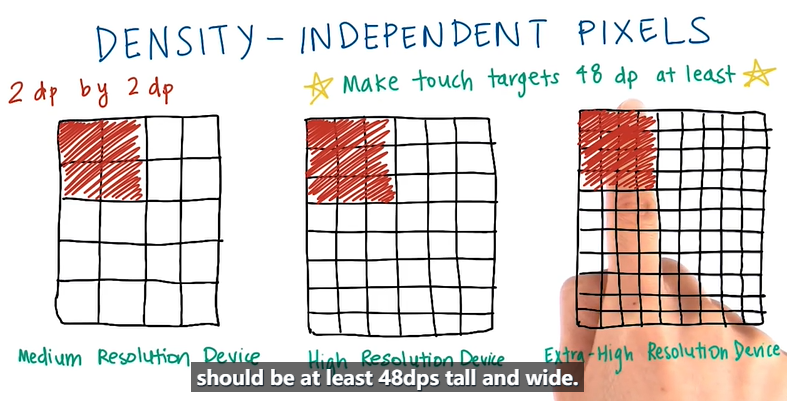 DENSITY-INDEPENDENT PIXELS
2 dp by 2 dp
Make touch targets 48 dp at least
Medium Resolution Device
High Resolution Device
Extra-High Resolution Device
should be at least 48dps tall and wide.